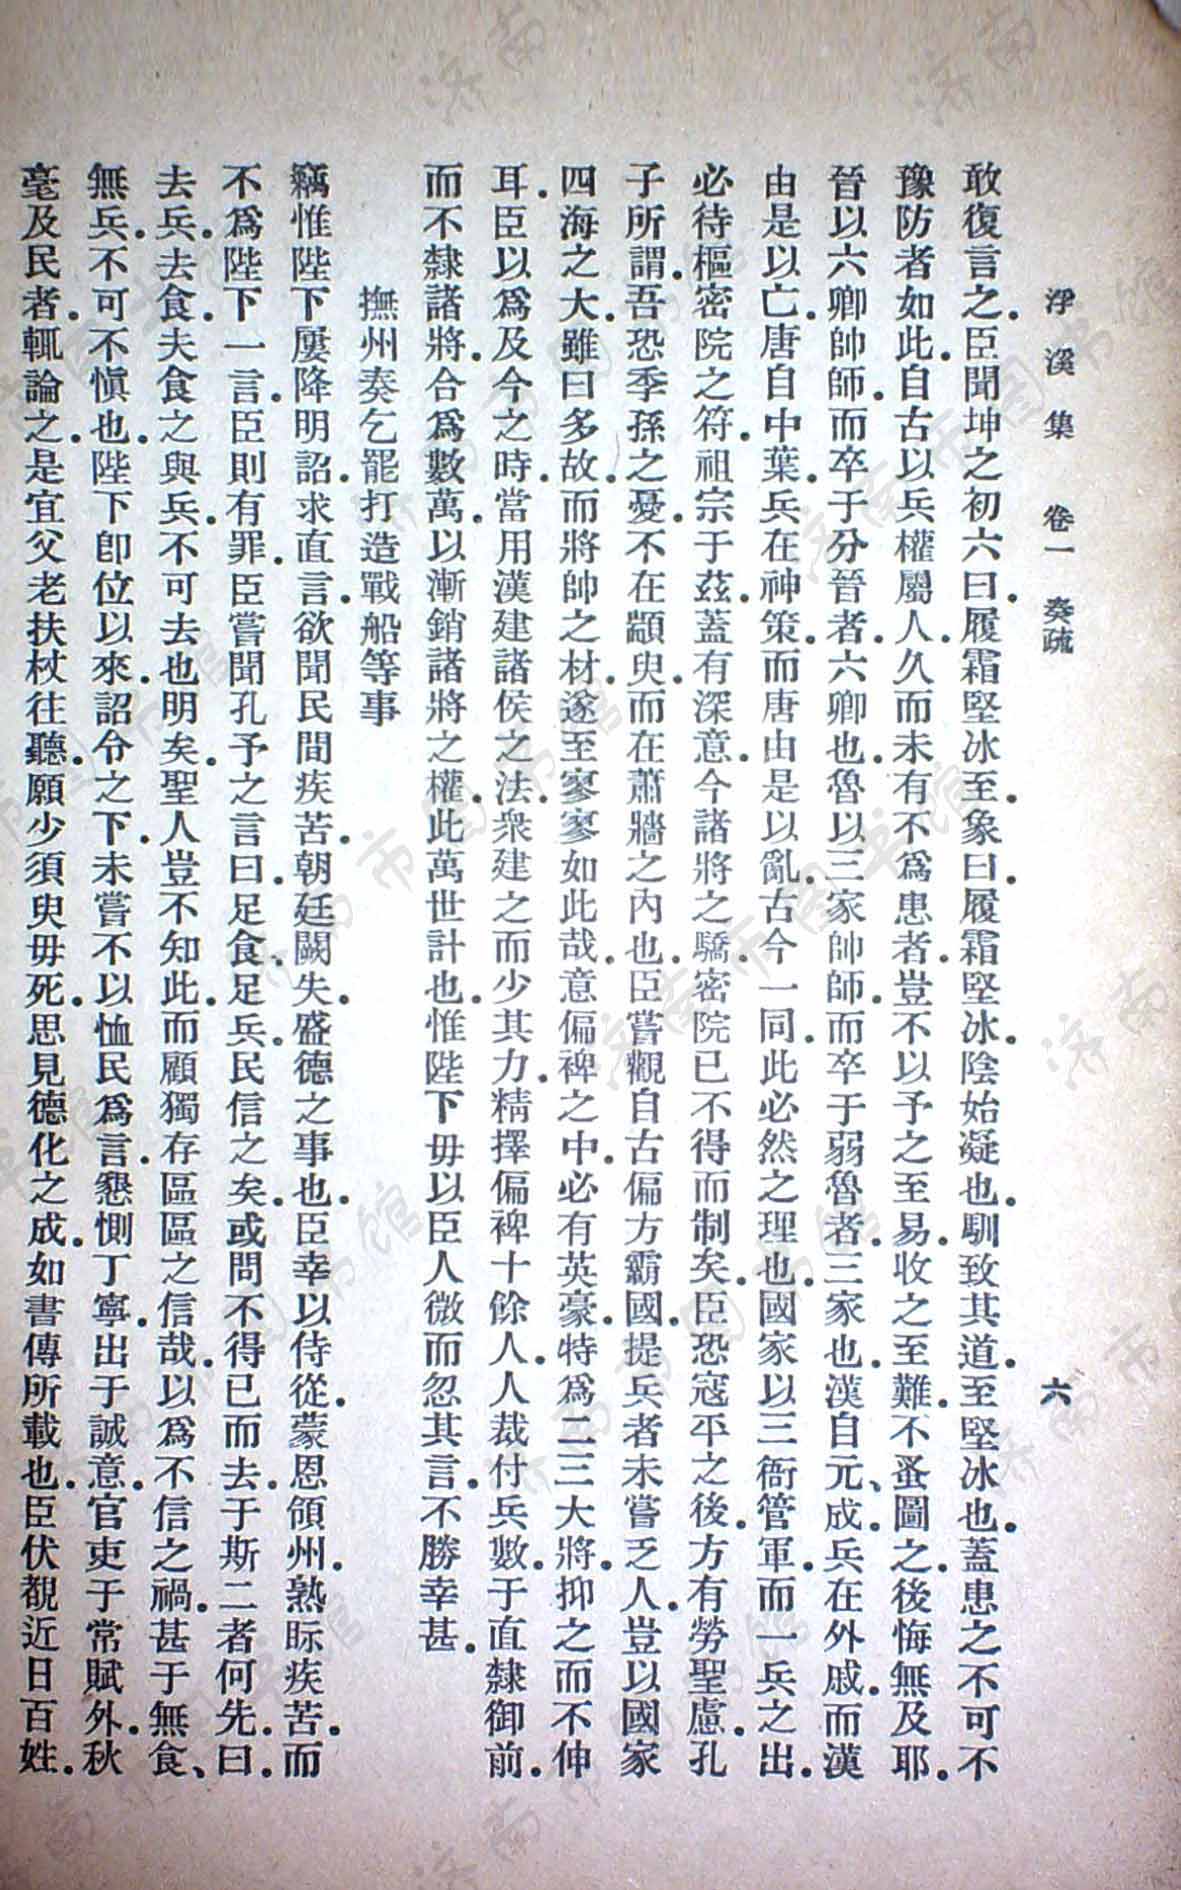 浮溪集 卷一 奏疏 六
敢復言之。臣聞坤之初六曰。履霜堅冰至。象曰。履霜堅冰。陰始凝也。馴致其道。至堅冰也。蓋患之不可不
豫防者如此。自古以兵權屬人。久而未有不爲患者。豈不以予之至易。收之至難。不蚤圖之。後悔無及耶。
晉以六卿帥師。而卒于分晉者。六卿也。魯以三家帥師。而卒于弱魯者。三家也。漢自元、成。兵在外戚。而漢
由是以亡。唐自中葉。兵在神策。而唐由是以亂。古今一同。此必然之理也。國家以三衙管軍。而一兵之出。
必待樞密院之符。祖宗于茲。蓋有深意。今諸將之驕。密院已不得而制矣。臣恐寇平之後。方有勞聖慮。孔
子所謂。吾恐季孫之憂。不在顓臾。而在蕭牆之內也。臣嘗觀自古偏方霸國。提兵者未嘗乏人。豈以國家
四海之大。雖曰多故。而將帥之材。遂至寥寥如此哉。意偏裨之中。必有英豪。特爲二三大將。抑之而不伸
耳。臣以爲及今之時。當用漢建諸侯之法。衆建之而少其力。精擇偏裨十餘人。人裁付兵數。于直隸御前。
而不隸諸將。合爲數萬。以漸銷諸將之權。此萬世計也。惟陛下毋以臣人微而忽其言。不勝幸甚。
撫州奏乞罷打造戰船等事
竊惟陛下屢降明詔。求直言。欲聞民間疾苦。朝廷闕失。盛德之事也。臣幸以侍從。蒙恩領州。熟眎疾苦。而
不爲陛下一言。臣則有罪。臣嘗聞孔子之言曰。足食。足兵。民信之矣。或問不得已而去。于斯二者何先。曰。
去兵。去食。夫食之與兵。不可去也明矣。聖人豈不知此。而顧獨存區區之信哉。以爲不信之禍。甚于無食、
無兵。不可不慎也。陛下卽位以來。詔令之下。未嘗不以恤民爲言。懇惻丁寧。出于誠意。官吏于常賦外。秋
毫及民者。輒論之。是宜父老扶杖往聽。願少須臾毋死。思見德化之成。如書傳所載也。臣伏覩近日百姓。